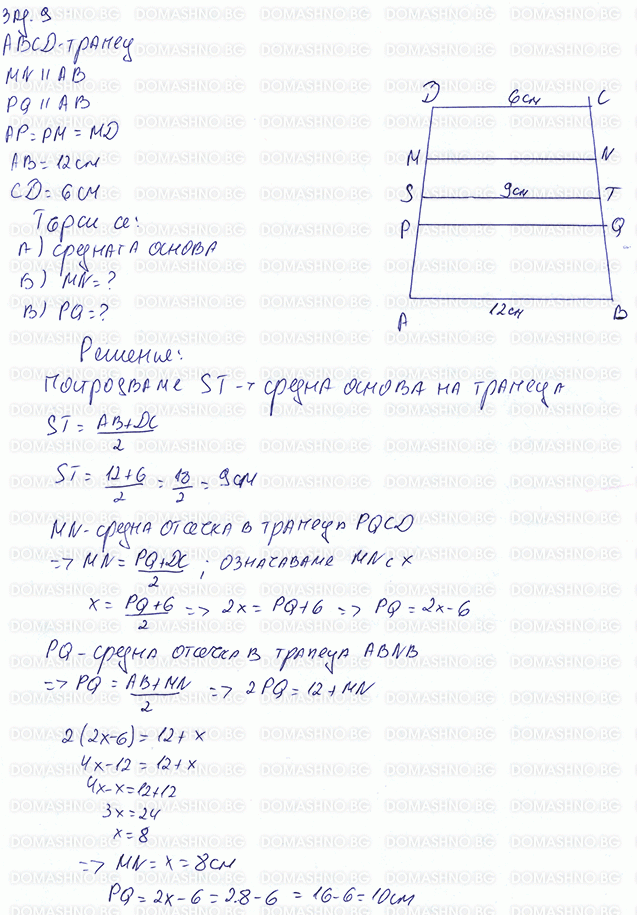 Зад. 9
ABCD - трапец
MN || AB
PQ || AB
AP = PM = MD
AB = 12 см
CD = 6 см
Търси се:
А) средната основа
Б) MN = ?
В) PQ = ?
D 6 см C
M N
S 9 см T
P Q
A 12 см B
Решение:
Построяваме ST → средна основа на трапеца
ST = AB+DC / 2
ST = 12+6 / 2 = 18 / 2 = 9 см
MN - средна отсечка в трапеца PQCD
=> MN = PQ+DC / 2 ; означаваме MN с x
x = PQ+6 / 2 => 2x = PQ+6 => PQ = 2x-6
PQ - средна отсечка в трапеца ABNB
=> PQ = AB+MN / 2 => 2PQ = 12 + MN
2(2x-6) = 12 + x
4x-12 = 12+x
4x-x = 12+12
3x = 24
x = 8
=> MN = x = 8 см
PQ = 2x - 6 = 2.8 - 6 = 16-6 = 10 см
DOMASHNO.BG